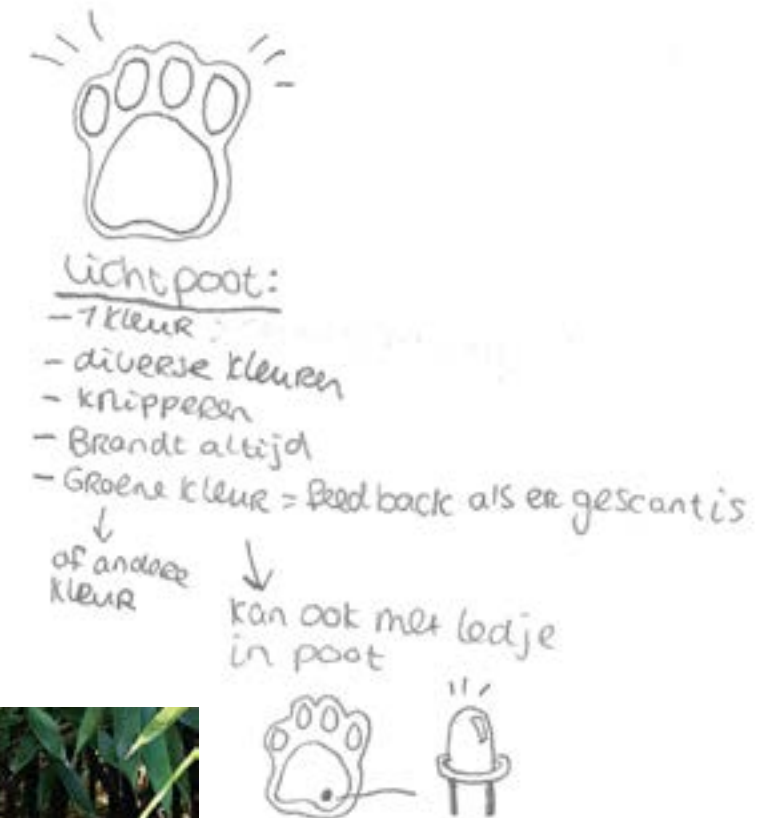 Lichtpoot:
- 1 kleur
- diverse kleuren
- knipperen
- Brandt altijd
- Groene kleur = feedback als er gescant is
of andere
kleur
kan ook met ledje
in poot